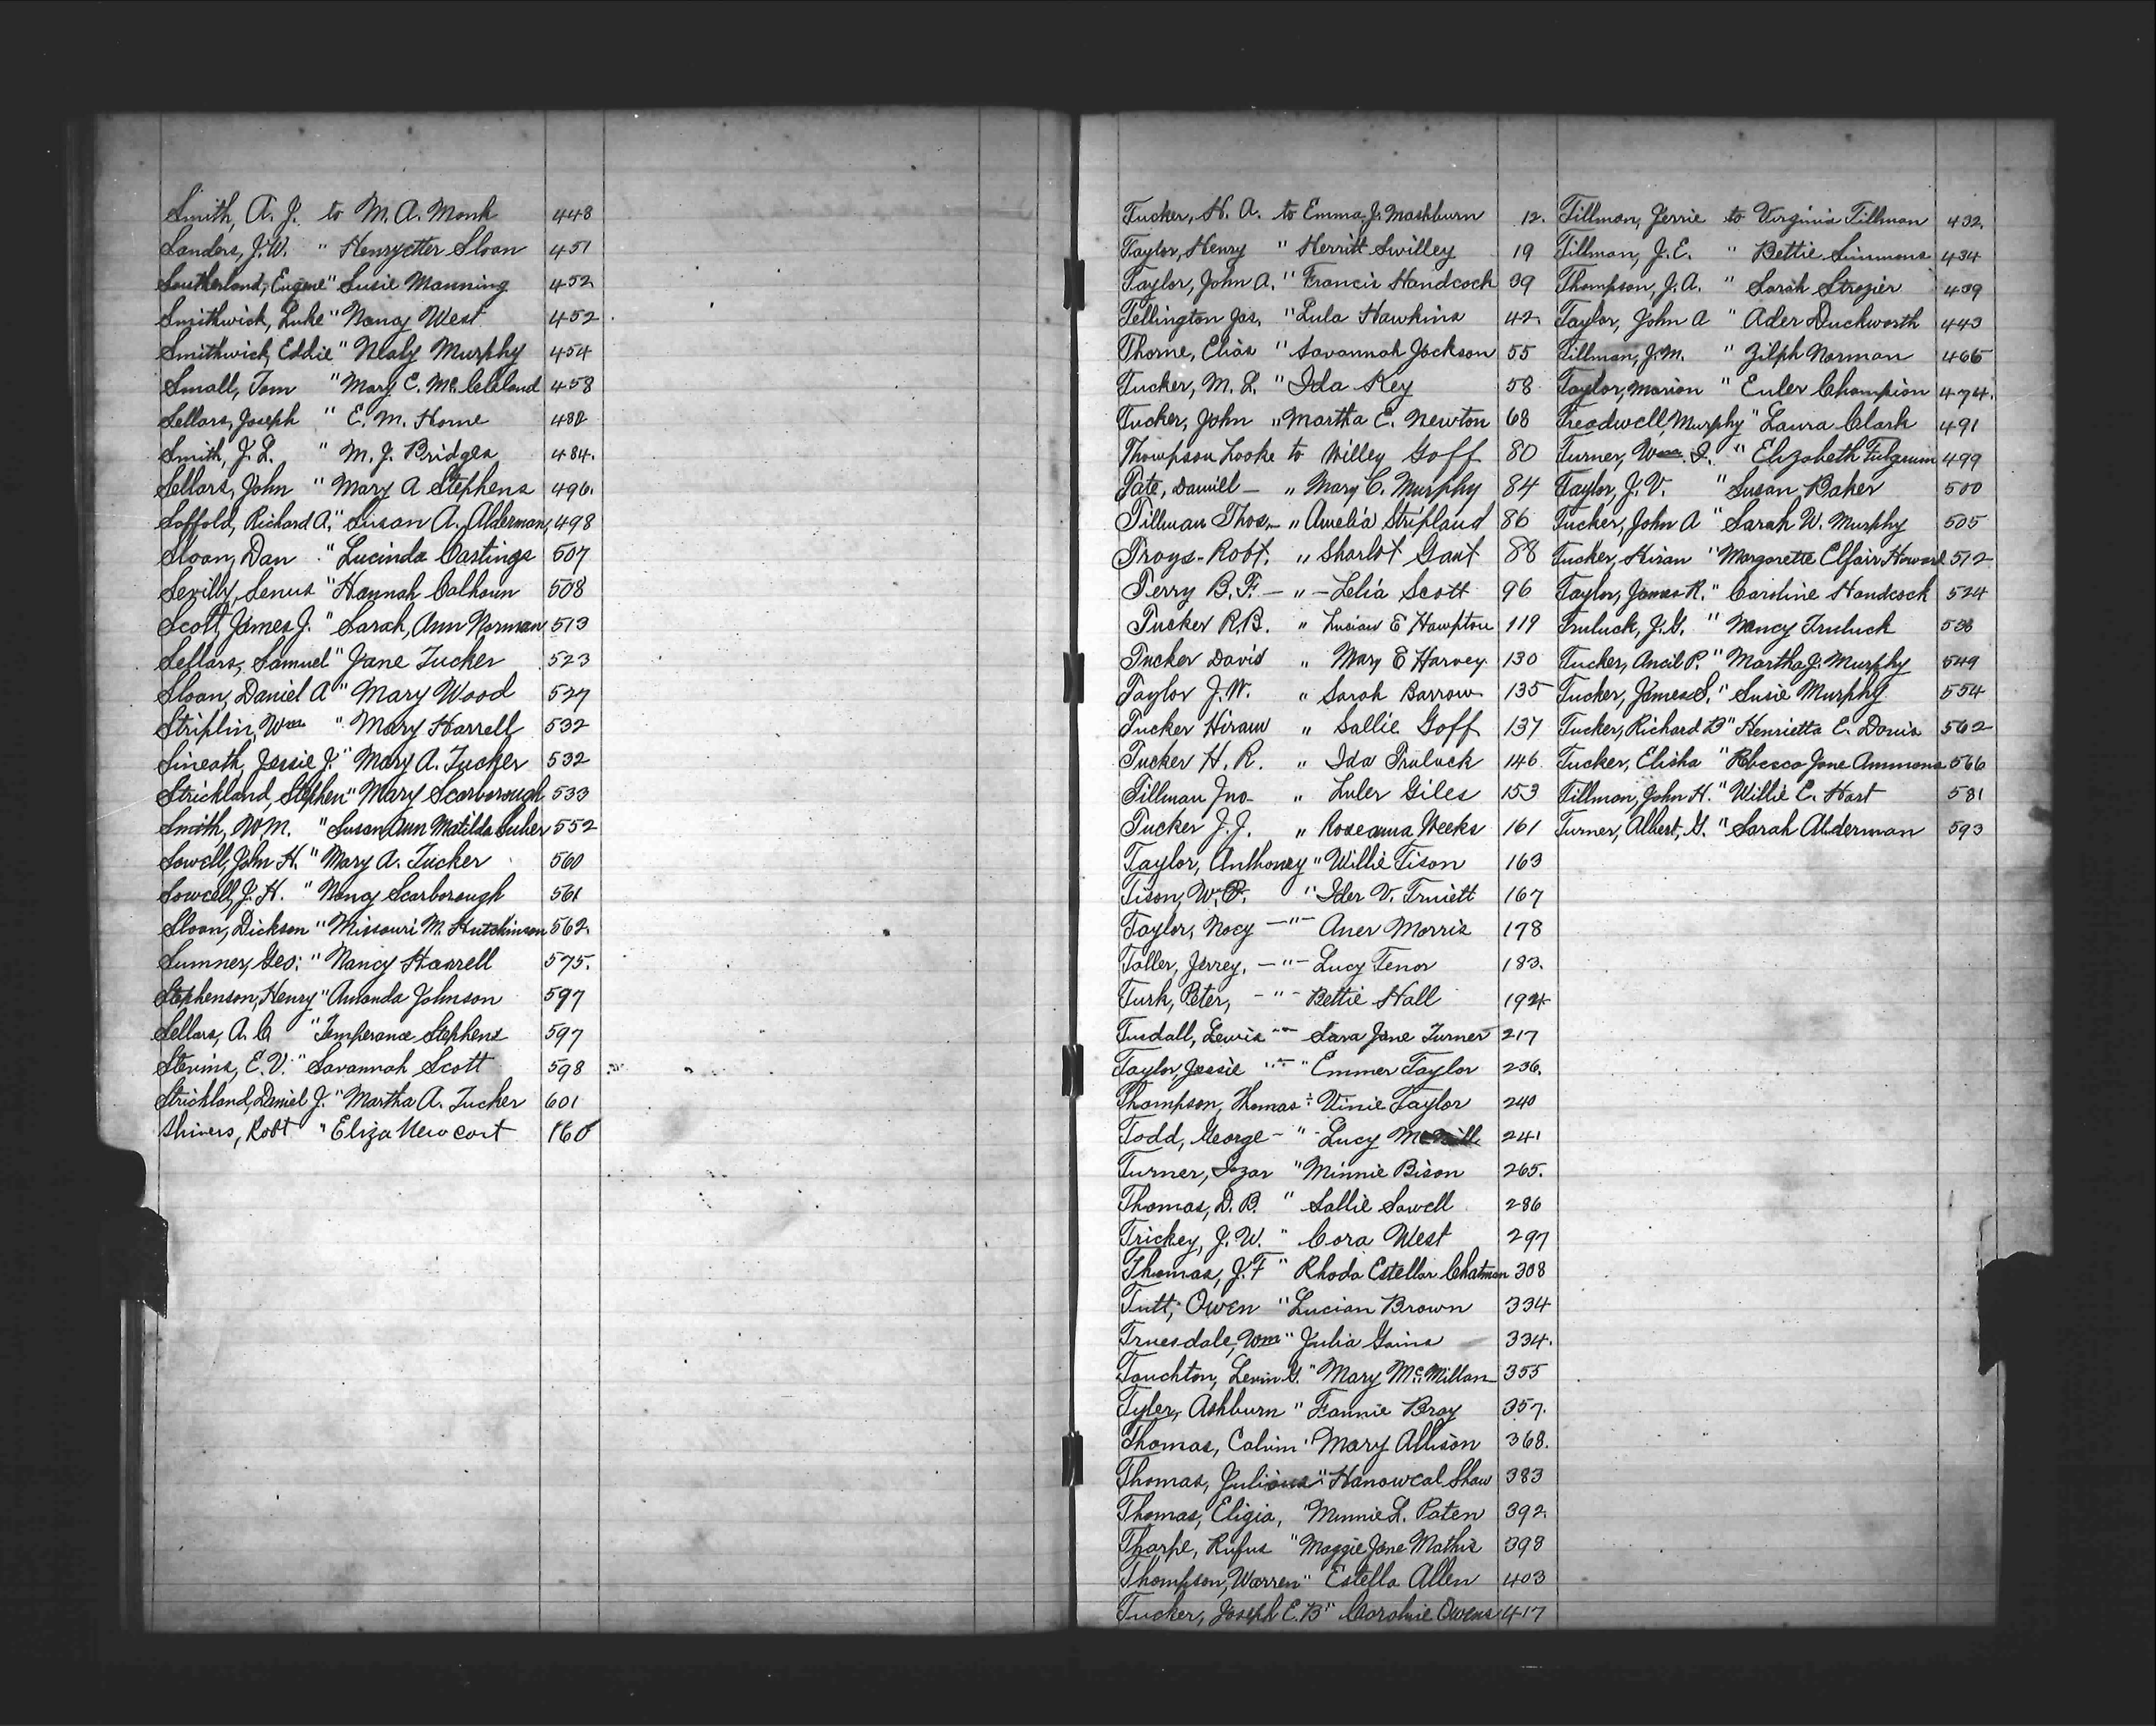 Smith, A. J. to M. A. Monk 448
Sanders, J. W. " Henryetter Sloan 451
Southerland, Eugene " Susie Manning 452
Smithwick, Luke " Nancy West 452
Smithwick, Eddie " Nealy Murphy 454
Small, Tom " Mary C. McCleland 458
Sellars, Joseph " E. M. Horne 482
Smith, J. L. " M. J. Bridges 484.
Sellars, John " Mary A Stephens 496.
Soffold, Richard A. " Susan A. Alderman, 498
Sloan, Dan " Lucinda Castings 507
Sevilly, Senus " Hannah Calhoun 508
Scott, James J. " Sarah, Ann Norman 513
Sellars, Samuel " Jane Tucker 523
Sloan, Daniel A " Mary Wood 527
Striplin, Wm " Mary Harrell 532
Sineath, Jessie J. " Mary A. Tucker 532
Strickland, Stephen " Mary Scarborough 533
Smith, WM. " Susan Ann Matilda 552
Sowell, John H. " Mary A. Tucker 560
Sowell, J. H. " Nancy Scarborough 561
Sloan, Dickson " Missouri M. Hutchinson 562.
Sumner, Geo: " Nancy Harrell 575.
Stephenson, Henry " Amanda Johnson 597
Sellars, A. C " Temperance Stephens 597
Stevins, E. V. " Savannah Scott 598
Strickland, Daniel J. " Martha A. Tucker 601
Shivers, Robt " Eliza Newcort 160
Tucker, H. A. to Emma J. Mashburn 12.
Taylor, Henry " Herritt Swilley 19
Taylor, John A. " Francis Handcock 39
Tellington Jas, " Lula Hawkins 42.
Thorne, Elias " Savannah Jackson 55
Tucker, M. L. " Ida Key 58
Tucker, John " Martha E. Newton 68
Thompson Looke to Willey Goff 80
Tate, Daniell — " Mary C. Murphy 84
Tillman Thos, — " Amelia Stripland 86
Troys - Robt. " Sharlot Gant 88
Terry B. F. — " — Lelia Scott 96
Tucker R, B. " Lucian E Hampton 119
Tucker David " Mary E Harvey 130
Taylor J. W. " Sarah Barrow 135
Tucker Hiram " Sallie Goff 137
Tucker H. R. " Ida Truluck 146
Tillman Jno- " Luler Giles 153
Tucker J. J. " Roseanna Weeks 161
Taylor, Anthoney " Willie Tison 163
Tison, W. P. " Ider V. Truiett 167
Taylor, Nocy — " — Aner Morris 178
Toller, Jerrey, — " — Lucy Tenor 183.
Turk, Peter, - " - Bettie Hall 194
Tusdall, Lewis " Sara Jane Turner 217
Taylor, Jessie " Emmer Taylor 236.
Thompson, Thomas " Vinie Taylor 240
Todd, George - " - Lucy 241
Turner, Izar " Minnie Bison 265.
Thomas, D. B. " Sallie Sowell 286
Trickey, J. W. " Cora West 297
Thomas, J. F " Rhoda Estellar Chatman 308
Tutt, Owen " Lucian Brown 334
Truesdale, Wm " Julia Gains 334.
Touchton, Levin G. " Mary McMillan 355
Tyler, Ashburn " Fannie Bray 357.
Thomas, Calvin " Mary Allison 368.
Thomas, Julious " Hanowcal Shaw 383
Thomas, Eligia, " Minnie L. Paten 392.
Tharpe, Rufus " Maggie Jane Mathis 398
Thompson, Warren " Estella Allen 403
Tucker, Joseph E. B " Caroline Owens 417
Tillman, Jerrie to Virginia Tillman 432.
Tillman, J. E. " Bettie Simmons 434
Thompson, J. A. " Sarah Strozier 439
Taylor, John A " Ader Duckworth 443
Tillman, J. M. " Zilph Norman 466
Taylor, Marion " Euler Champion 474.
Treadwell, Murphy " Laura Clark 491
Turner, Wm I. " Elizabeth Fulgrum 499
Taylor, J. V. " Susan Baker 500
Tucker, John A " Sarah W. Murphy 505
Tucker, Hiran " Margarette Elfair Howard 512
Taylor, James R. " Caroline Handcock 524
Truluck, J. G. " Nancy Truluck 538
Tucker, Ancil P. " Martha J. Murphy 549
Tucker, James S. " Susie Murphy 554
Tucker, Richard B " Henrietta E. Davis 562
Tucker, Elisha " Rbecca Jane Ammons 566
Tillman, John H. " Willie E. Hart 581
Turner, Albert, G. " Sarah Alderman 593